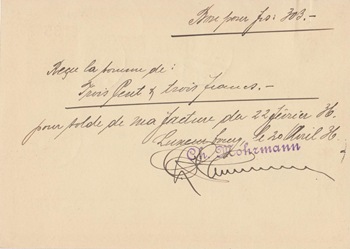 Bon pour frs: 303.-
Reçu la somme de:
Trois Cent & trois francs.-
pour solde de ma facture du 22 février 36.
Luxembourg, le 20 Avril 36.
Ch. Mohrmann